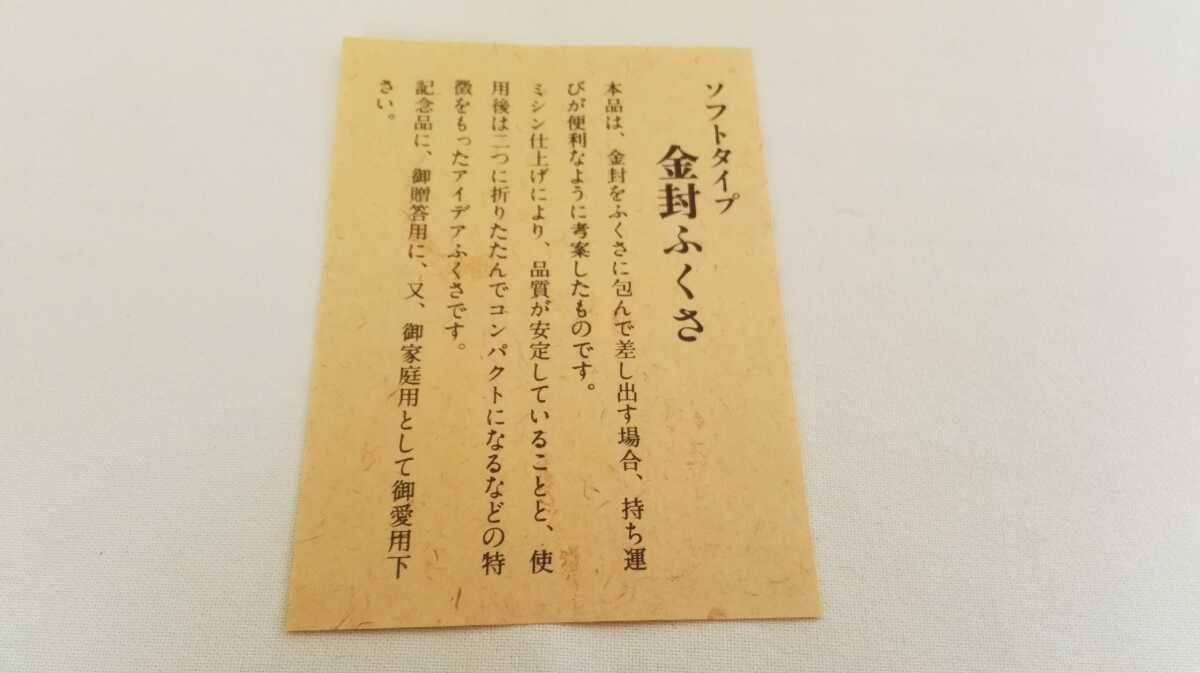 ソフトタイプ
金封ふくさ
本品は、金封をふくさに包んで差し出す場合、持ち運
びが便利なように考案したものです。
ミシン仕上げにより、品質が安定していることと、使
用後は二つに折りたたんでコンパクトになるなどの特
徴をもったアイデアふくさです。
記念品に、御贈答用に、又、御家庭用として御愛用下
さい。